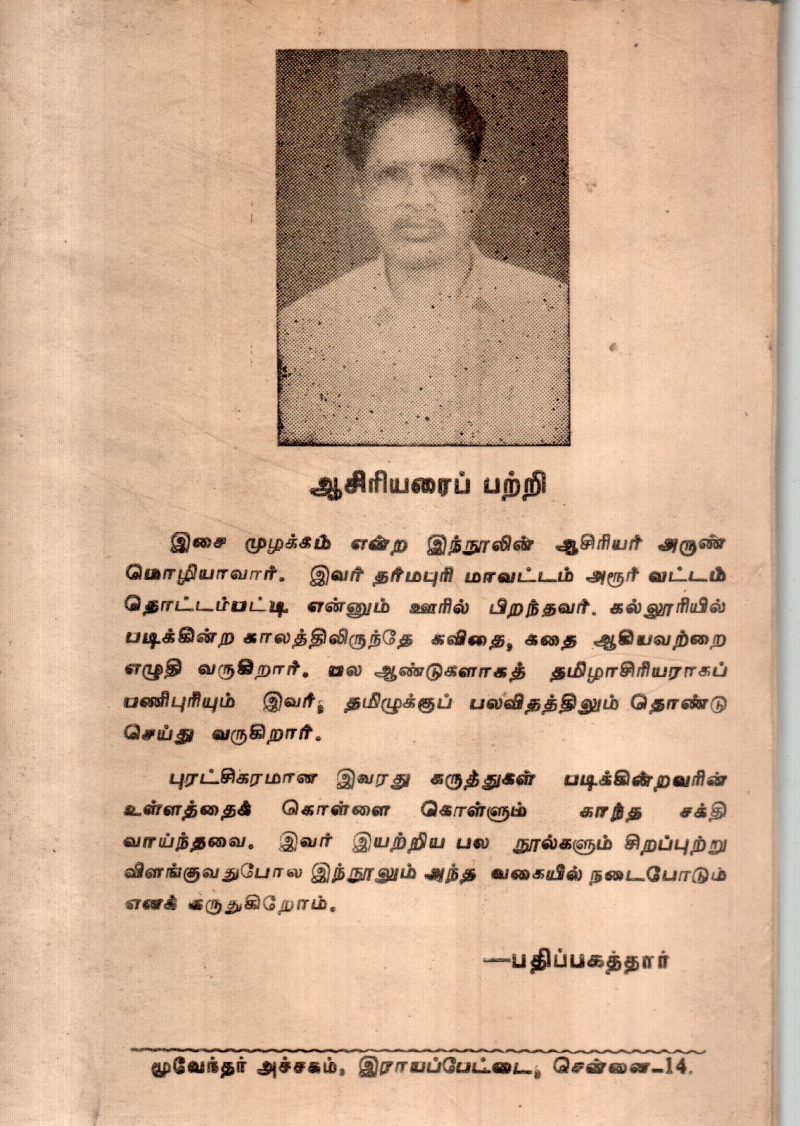 ஆசிரியரைப் பற்றி
இசை முழக்கம் என்ற இந்நூலின் ஆசிரியர் அருண்
மொழியாவார். இவர் தர்மபுரி மாவட்டம் அரூர் வட்டம்
தொட்டம்பட்டி என்னும் ஊரில் பிறந்தவர். கல்லூரியில்
படிக்கின்ற காலத்திலிருந்தே கவிதை, கதை ஆகியவற்றை
எழுதி வருகிறார். பல ஆண்டுகளாகத் தமிழாசிரியராகப்
பணிபுரியும் இவர், தமிழுக்குப் பலவிதத்திலும் தொண்டு
செய்து வருகிறார்.
புரட்சிகரமான இவரது கருத்துகள் படிக்கின்றவரின்
உள்ளத்தைக் கொள்ளை கொள்ளும் காந்த சக்தி
வாய்ந்தவை. இவர் இயற்றிய பல நூல்களும் சிறப்புற்று
விளங்குவதுபோல இந்நூலும் அந்த வகையில் நடைபோடும்
எனக் கருதுகிறோம்.
—பதிப்பகத்தார்
மூவேந்தர் அச்சகம், இராயப்பேட்டை, சென்னை-14.